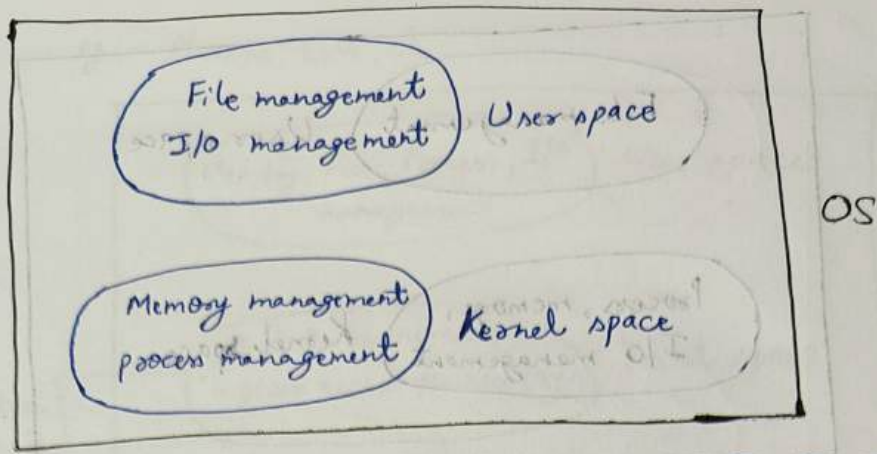 File management
I/O management
User space
OS
Memory management
process management
Kernel space